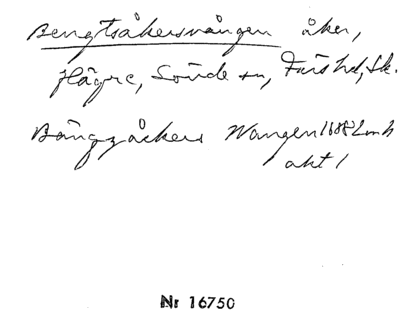 Bengtsåkersvången åker,
Hågre, Sörde sn, Färs hd, Sk.
Bängzåckers Wangen 1682 Lmh
akt 1
Nr 16750